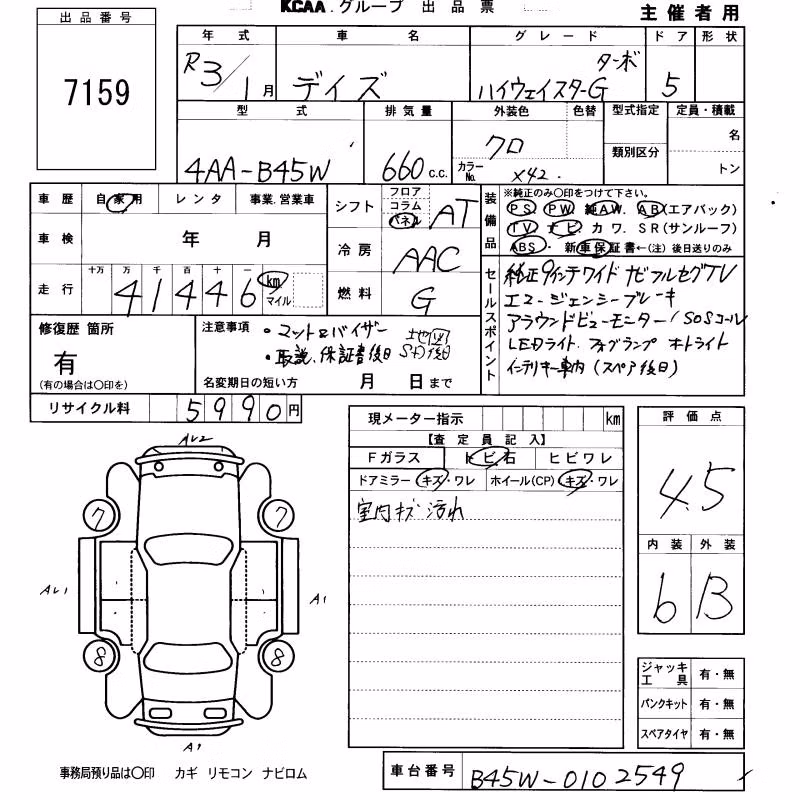 KCAA.グループ 出品票 主催者用
出品番号
7159
年式 車名 グレード ドア 形状
R3/1月 デイズ ターボ
ハイウェイスターG 5
型式 排気量 外装色 色替 型式指定 定員・積載
4AA-B45W 660 c.c. クロ 名
類別区分
カラーNo. X42 トン
車歴 自家用 レンタ 事業.営業車
シフト フロア コラム パネル AT
装備品 ※純正のみ〇印をつけて下さい。
PS PW. 純AW. AB(エアバック)
TV ナビ カワ. SR(サンルーフ)
ABS・ 新車保証書←(注)後日送りのみ
車検 年 月
冷房 AAC
走行 十万 万 千 百 十 一
41446 km マイル
燃料 G
セールスポイント
純正9インチワイド ナビフルセグTV
エマージェンシーブレーキ
アラウンドビューモニター/SOSコール
LEDライト フォグランプ オートライト
インテリキー車内(スペア後日)
修復歴 箇所
有
(有の場合は〇印を)
注意事項
・マット&バイザー 地図
・取説、保証書後日 SD後日
名変期日の短い方 月 日まで
リサイクル料 5990円
現メーター指示 km
【査定員記入】
Fガラス トビ石 ヒビワレ
ドアミラー キズ・ワレ ホイール(CP) キズ・ワレ
室内キズ汚れ
評価点
4.5
内装 外装
6 B
AU2
7 7
AU1 A1
8 8
A1
ジャッキ工具 有・無
パンクキット 有・無
スペアタイヤ 有・無
事務局預り品は〇印 カギ リモコン ナビロム
車台番号 B45W-0102549